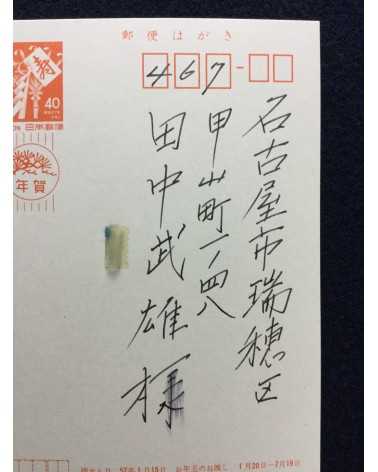 郵便はがき
467
名古屋市瑞穂区
甲山町一ノ四八
田中武雄様
寿
40
日本郵便
年賀
57年1月15日 お年玉のお渡し 1月20日-7月19日